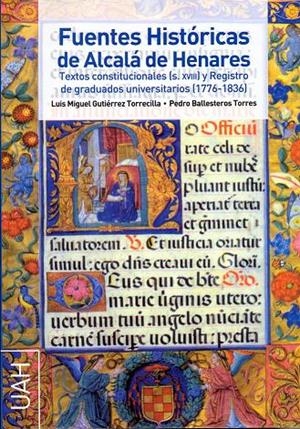 Fuentes Históricas
de Alcalá de Henares
Textos constitucionales (s. XVIII) y Registro
de graduados universitarios (1776-1836)
Luis Miguel Gutiérrez Torrecilla • Pedro Ballesteros Torres
Officiũ
rate celi de
sup et nubes
pluant iustũ:
aperiat terra
et gminet
saluatorem. V. Et iusticia oriatur
simul: ego dñs creaui eũ. Glori.
Eus qui de bte Oro.
marie úginis utero:
uerbum tuũ angelo nũciãte
carné suscipe uoluisti: presta
UAH